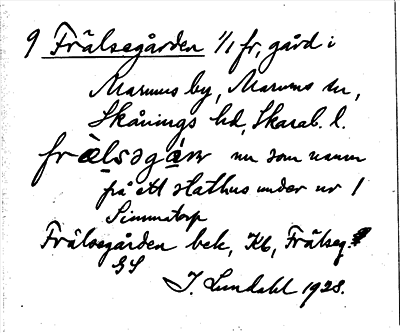 9 Frälsegården 1/1 fr, gård i
Marums by, Marums sn,
Skånings hd, Skarab. l.
fràlsəgán nu som namn
på ett stathus under nr 1
Simmatorp
Frälsegården bek, Kb, Frälseg.
GS
J. Lundahl 1928.